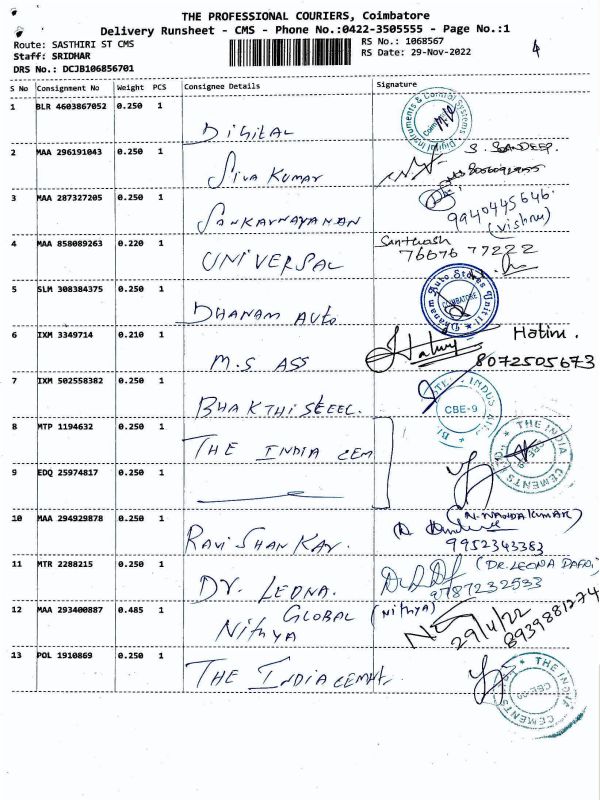 THE PROFESSIONAL COURIERS, Coimbatore
Delivery Runsheet - CMS - Phone No.:0422-3505555 - Page No.:1
Route: SASTHIRI ST CMS
Staff: SRIDHAR
DRS No.: DCJB106856701
RS No.: 1068567
RS Date: 29-Nov-2022
S No Consignment No Weight PCS Consignee Details Signature
1 BLR 4603867052 0.250 1 Digital
Digital Instruments & Control Systems
2 MAA 296191043 0.250 1 Siva Kumar S. SANDEEP.
3 MAA 287327205 0.250 1 Sankarnayanan 9940445646.
(Vishnu)
4 MAA 858089263 0.220 1 UNIVERSAL Santhosh
76676 77222
5 SLM 308384375 0.250 1 DHANAM AUTO
Dhanam Auto Stores Unit II
COIMBATORE
6 IXM 3349714 0.210 1 M.S ASS Hatim.
8072505673
7 IXM 502558382 0.250 1 BHAKTHI STEEL.
CBE-9
8 MTP 1194632 0.250 1 THE INDIA CEM
THE INDIA CEMENTS
9 EDQ 25974817 0.250 1
10 MAA 294929878 0.250 1 Ravi Shankar. (N. NANDAKUMAR)
9952343383
11 MTR 2288215 0.250 1 Dr. LEONA. (DR. LEONA
9787232533
12 MAA 293400887 0.485 1 Nithya GLOBAL (Nithya)
29/11/22
8939881274
13 POL 1910869 0.250 1 THE INDIA CEMT.
THE INDIA CEMENTS